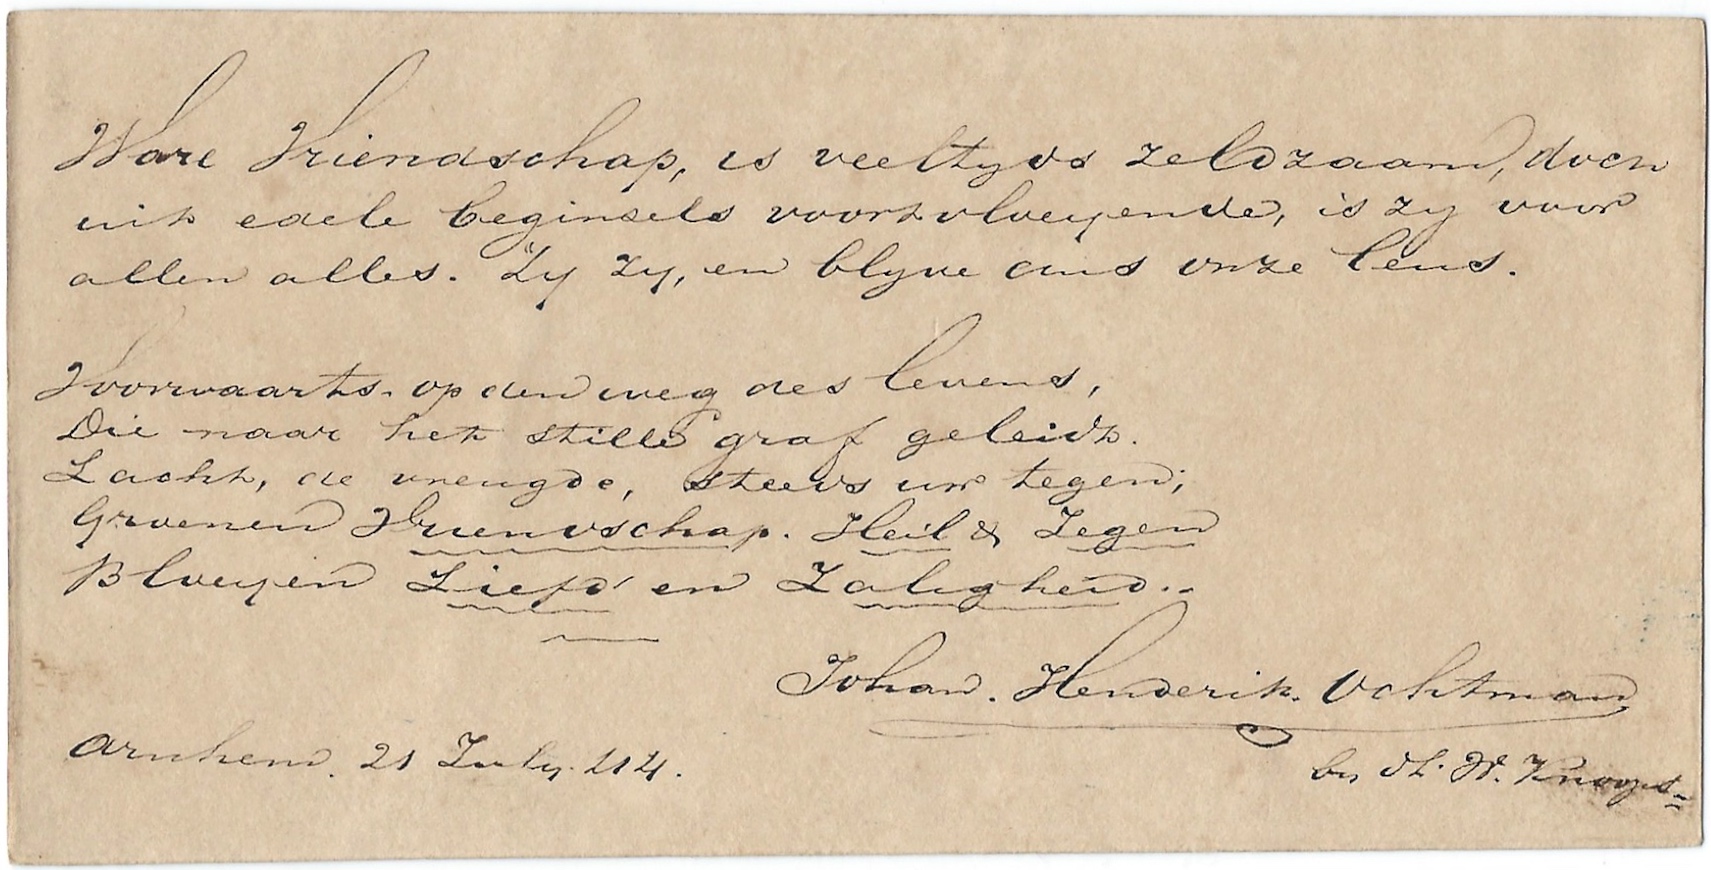 Ware Vriendschap, is veeltyds zeldzaam, doch
uit edele beginsels voortvloeyende, is zy voor
allen alles. Zy zy, en blyve ons onze leus.
Voorwaarts op den weg des levens,
Die naar het stille graf geleidt.
Lacht, de vreugde, steeds uw tegen;
Groenen Vriendschap. Heil & Zegen
Bloeyen Liefd' en Zaligheid..
Johan. Henderik. Ochtman
Arnhem. 21 July 414.
by W. Knoops